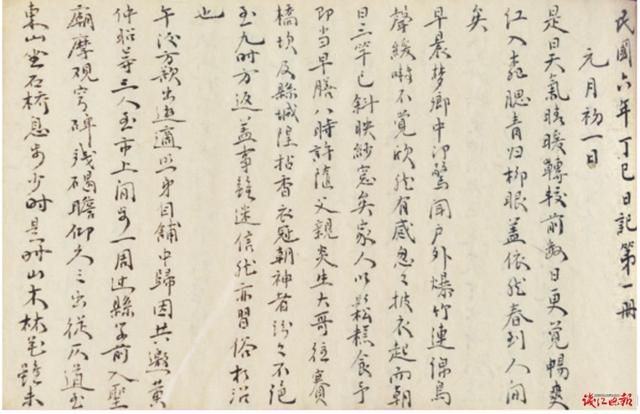 民國六年丁巳日記第一冊
元月初一日
是日天氣晴暖轉較前數日更覺暢爽
紅入桃腮青归柳眼盖依然春到人间
矣
早晨梦鄉中即驚闻户外爆竹連綿鳥
聲緩啭不覺欣然有感忽々披衣起而朝
日三竿已斜映紗窓矣家人以鬆糕食予
即当早膳八時許隨父親炎生大哥往賽
橋坝及縣城隍拈香衣冠朝神者紛々不絶
至九时方返盖事雖迷信然亦習俗相沿
也
午後方出遊適自鋪中歸因共邀黄
仲昭等三人至市上闲步一周过縣学前入聖
廟摩穹碑残碣瞻仰久之出從仄道至
東山坐石橋息步少时是时山木林花雖未
钱江晚报